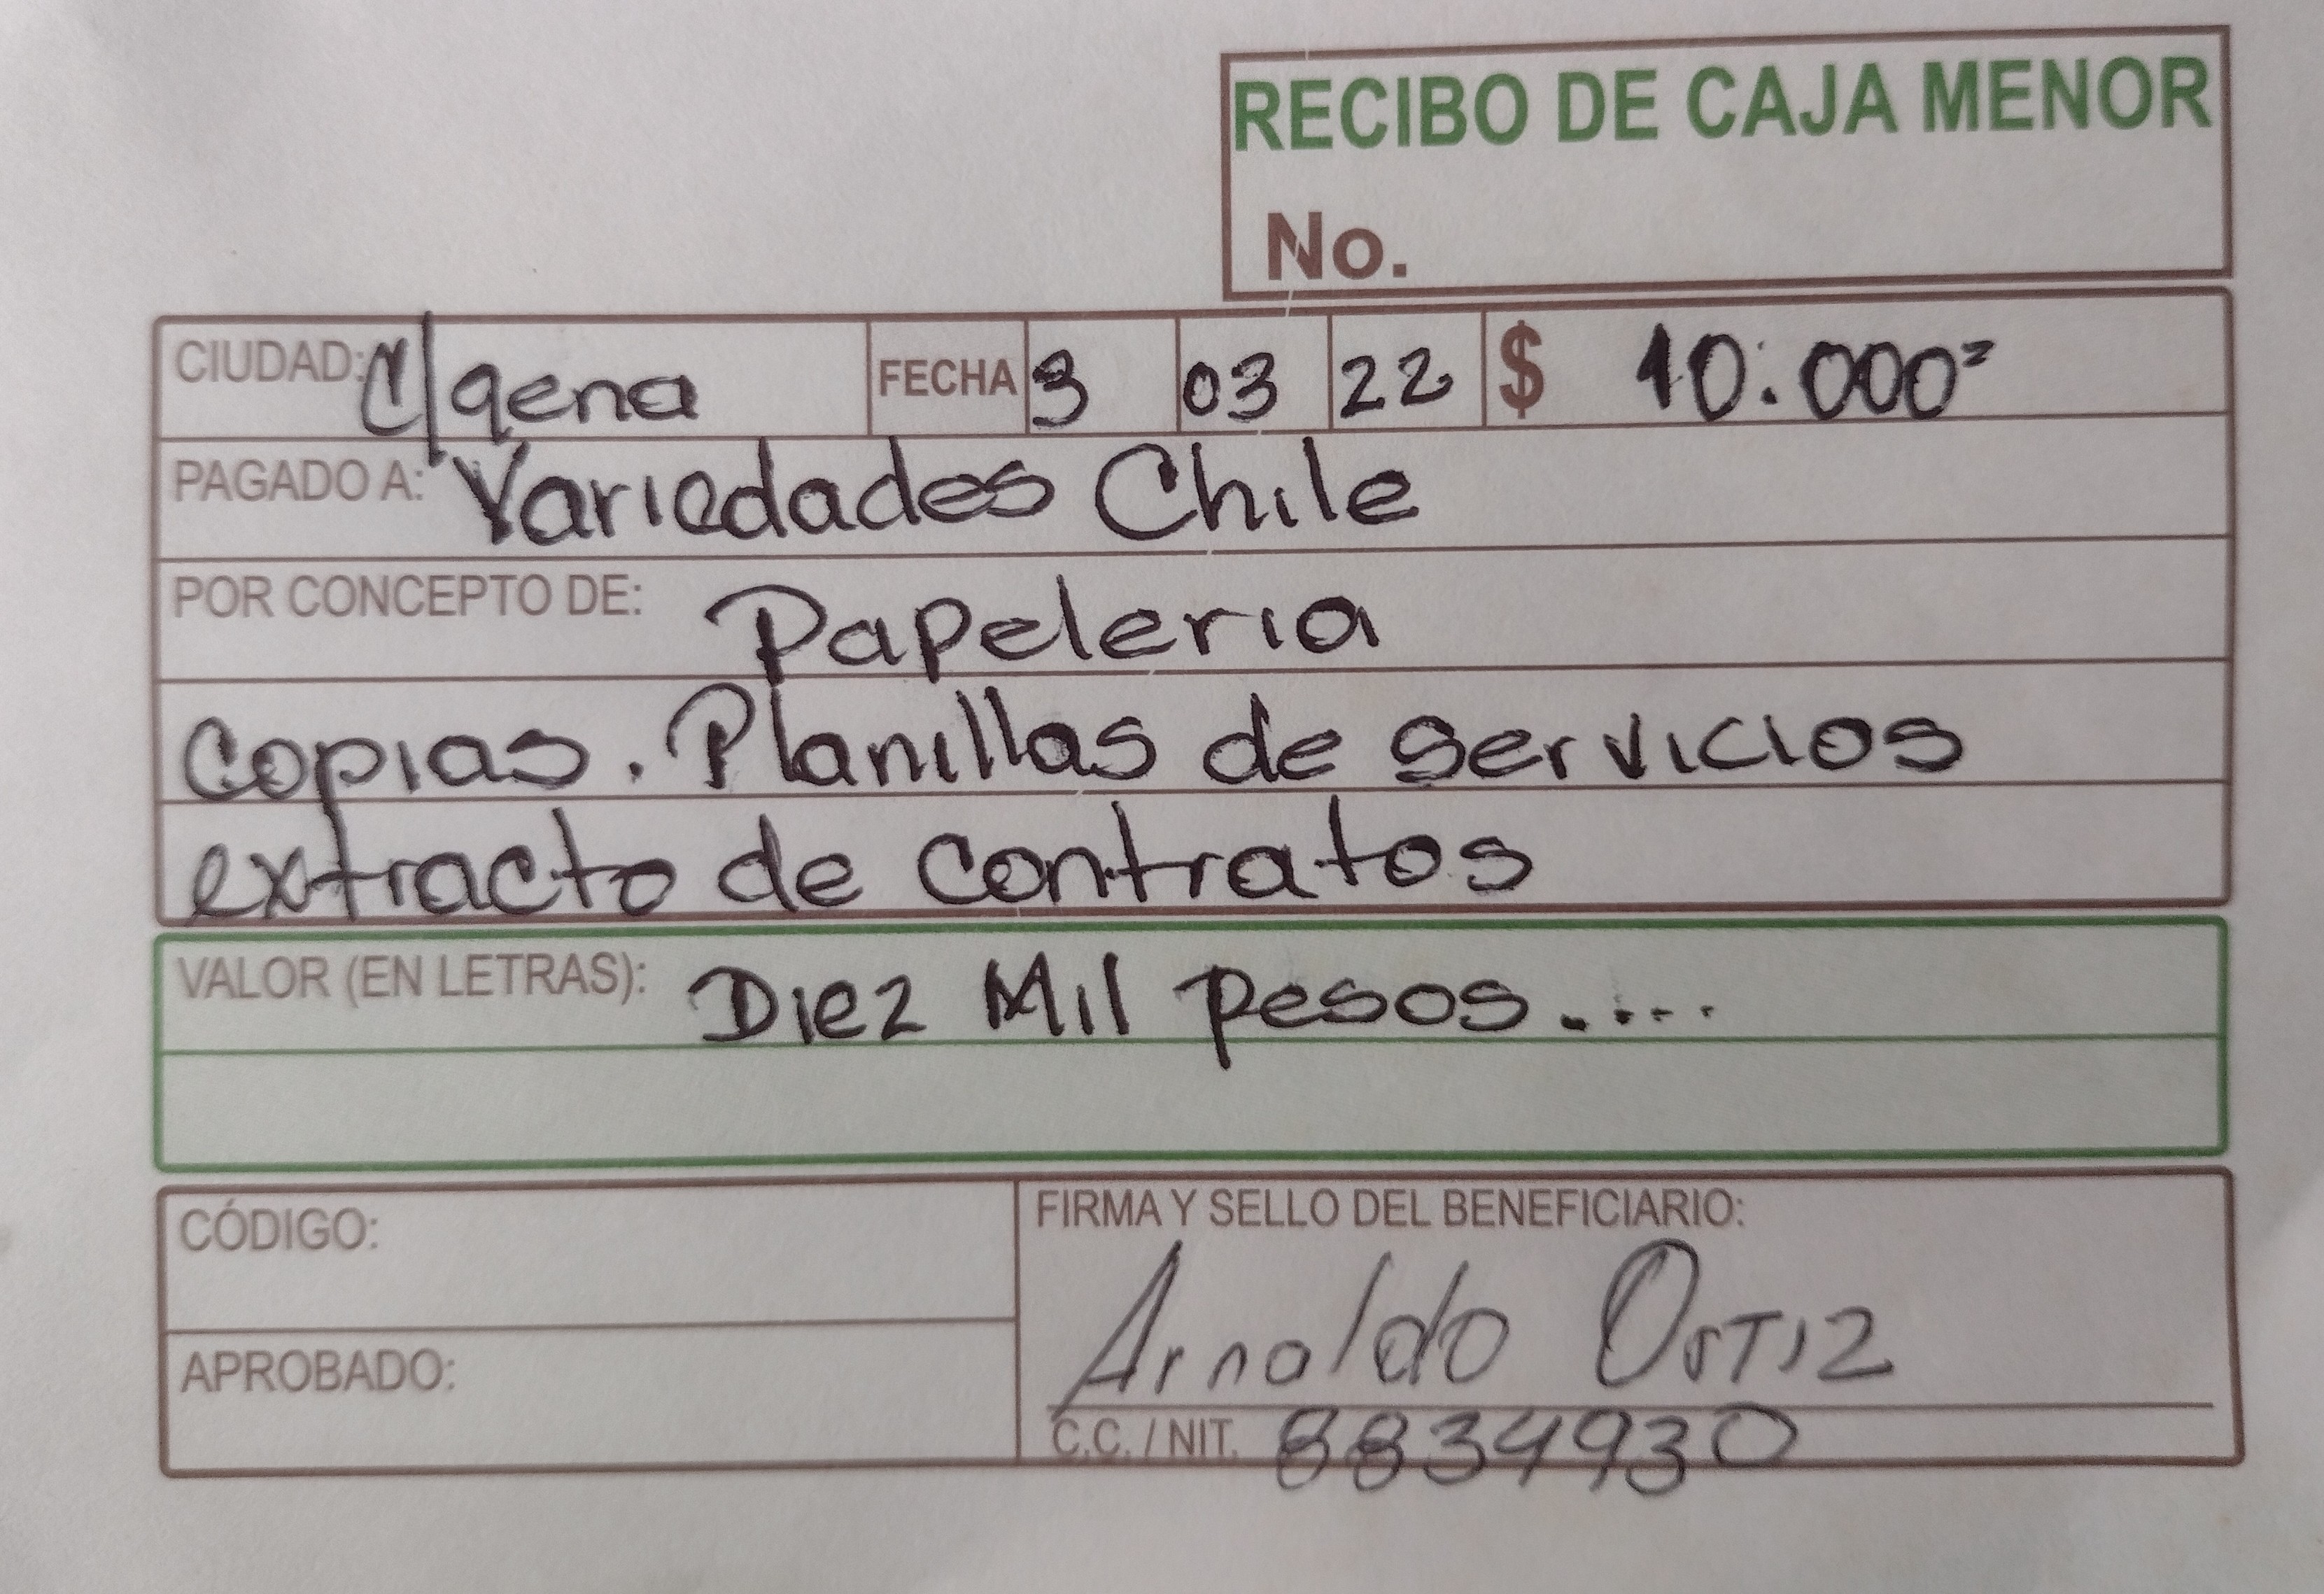 RECIBO DE CAJA MENOR
No.
CIUDAD: C/gena FECHA 3 03 22 $ 10.000=
PAGADO A: Variedades Chile
POR CONCEPTO DE: Papeleria
copias. Planillas de servicios
extracto de contratos
VALOR (EN LETRAS): Diez Mil pesos.....
CÓDIGO:
APROBADO:
FIRMA Y SELLO DEL BENEFICIARIO:
Arnaldo Ortiz
C.C. / NIT. 8834930